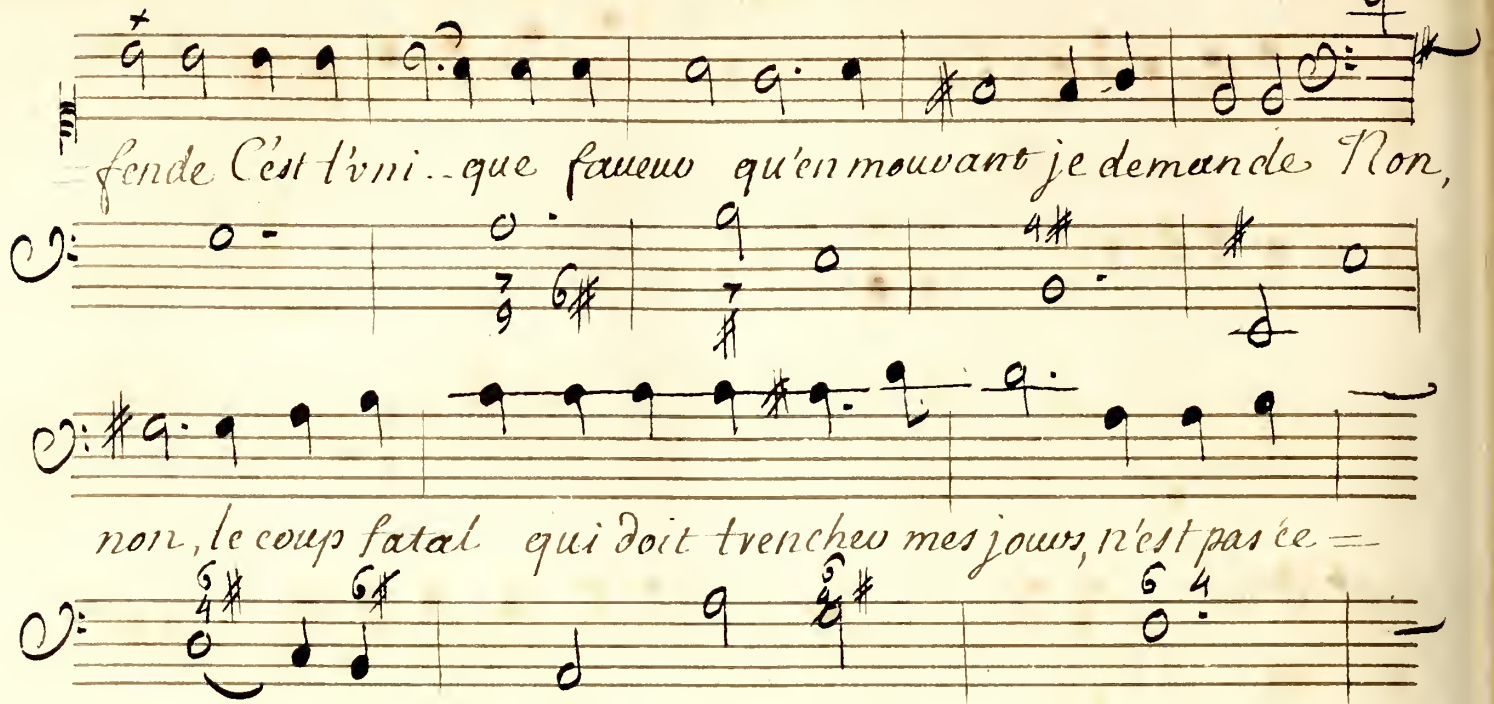 fende C'est l'vni.. que faueur qu'en mourant je demande Non,
non, le coup fatal qui doit trencher mes jours, n'est pas ce =